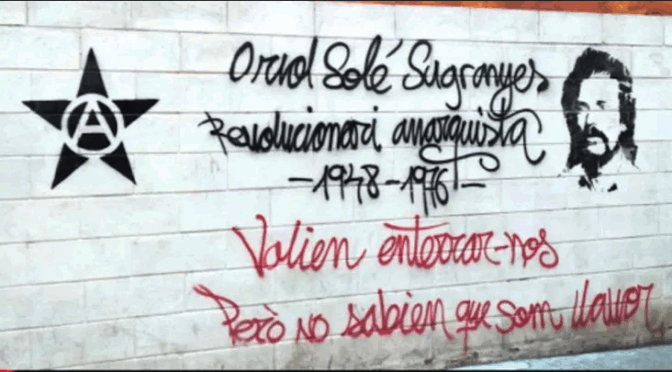 A
Oriol Solé Sugranyes
Revolucionari anarquista
-1948-1976-
Volien enterrar-nos
Però no sabien que som llavor